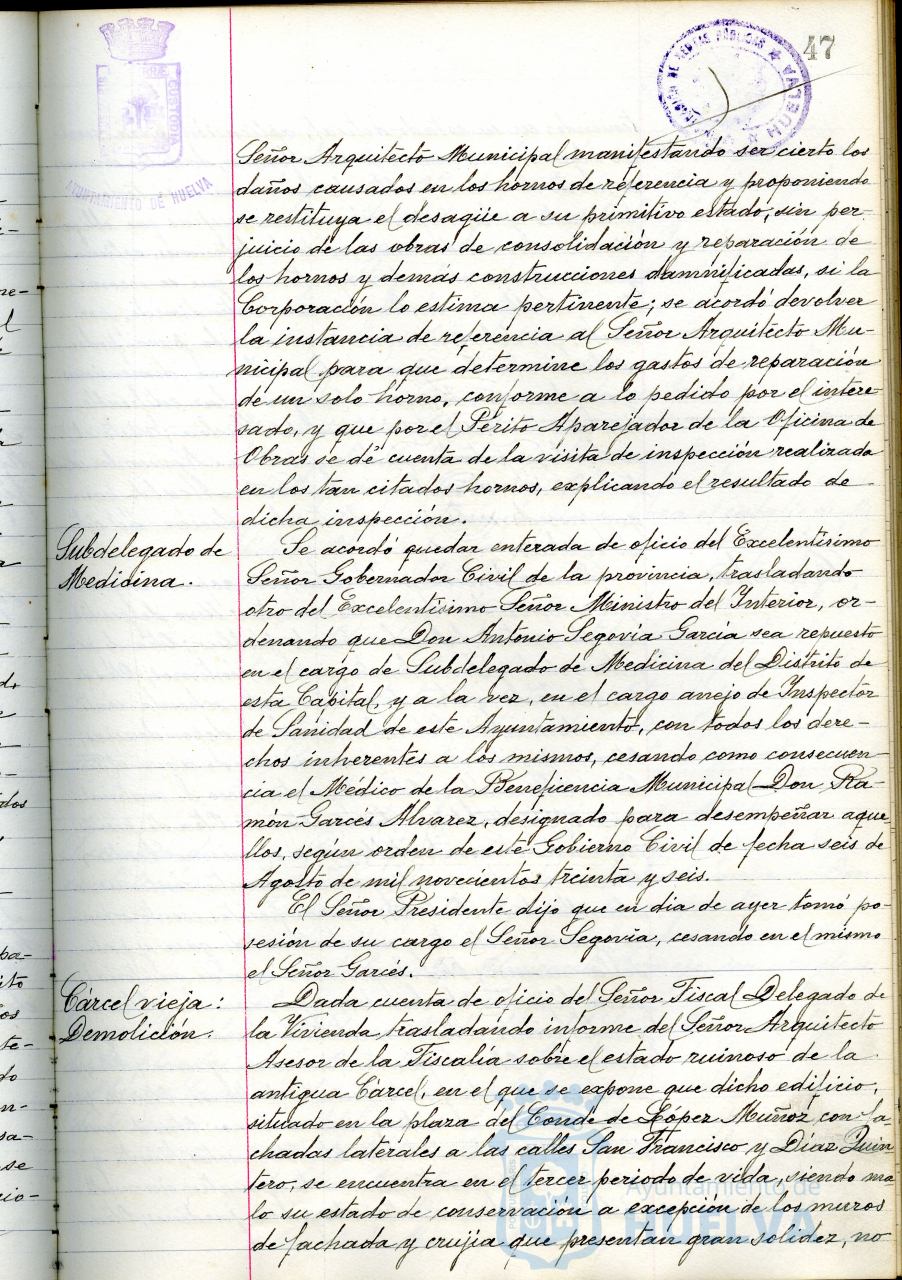 47
AYUNTAMIENTO DE HUELVA
CUSTODIA
HUELVA
Señor Arquitecto Municipal manifestando ser cierto los
daños causados en los hornos de referencia y proponiendo
se restituya el desagüe a su primitivo estado, sin per-
juicio de las obras de consolidación y reparación de
los hornos y demás construcciones damnificadas, si la
Corporación lo estima pertinente; se acordó devolver
la instancia de referencia al Señor Arquitecto Mu-
nicipal para que determine los gastos de reparación
de un solo horno, conforme a lo pedido por el intere-
sado, y que por el Périto Aparejador de la Oficina de
Obras se dé cuenta de la visita de inspección realizada
en los tan citados hornos, explicando el resultado de
dicha inspección.
Subdelegado de
Medicina.
Se acordó quedar enterada de oficio del Excelentísimo
Señor Gobernador Civil de la provincia, trasladando
otro del Excelentísimo Señor Ministro del Interior, or-
denando que Don Antonio Segovia García sea repuesto
en el cargo de Subdelegado de Medicina del Distrito de
esta Capital, y a la vez, en el cargo anejo de Inspector
de Sanidad de este Ayuntamiento, con todos los dere-
chos inherentes a los mismos, cesando como consecuen-
cia el Médico de la Beneficencia Municipal Don Ra-
món Garcés Alvarez, designado para desempeñar aque
llos, según orden de este Gobierno Civil de fecha seis de
Agosto de mil novecientos treinta y seis.
El Señor Presidente dijo que en dia de ayer tomó po-
sesión de su cargo el Señor Segovia, cesando en el mismo
el Señor Garcés.
Cárcel vieja:
Demolición:
Dada cuenta de oficio del Señor Fiscal Delegado de
la Vivienda, trasladando informe del Señor Arquitecto
Asesor de la Fiscalía sobre el estado ruinoso de la
antigua Cárcel, en el que se expone que dicho edificio,
situado en la plaza del Conde de López Muñoz con fa-
chadas laterales a las calles San Francisco y Díaz Quin
tero, se encuentra en el tercer periodo de vida, siendo ma
lo su estado de conservación a excepción de los muros
de fachada y crujía que presentan gran solidez, no
Ayuntamiento de
HUELVA